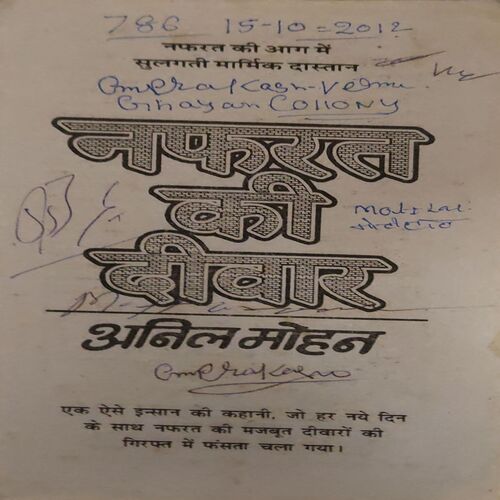 786 15-10=2012
नफरत की आग में
सुलगती मार्मिक दास्तान
Omprakash-Verma
Ghayan COLLONY
नफरत
की
दीवार
अनिल मोहन
Omprakash
एक ऐसे इन्सान की कहानी, जो हर नये दिन
के साथ नफरत की मजबूत दीवारों की
गिरफ्त में फंसता चला गया।